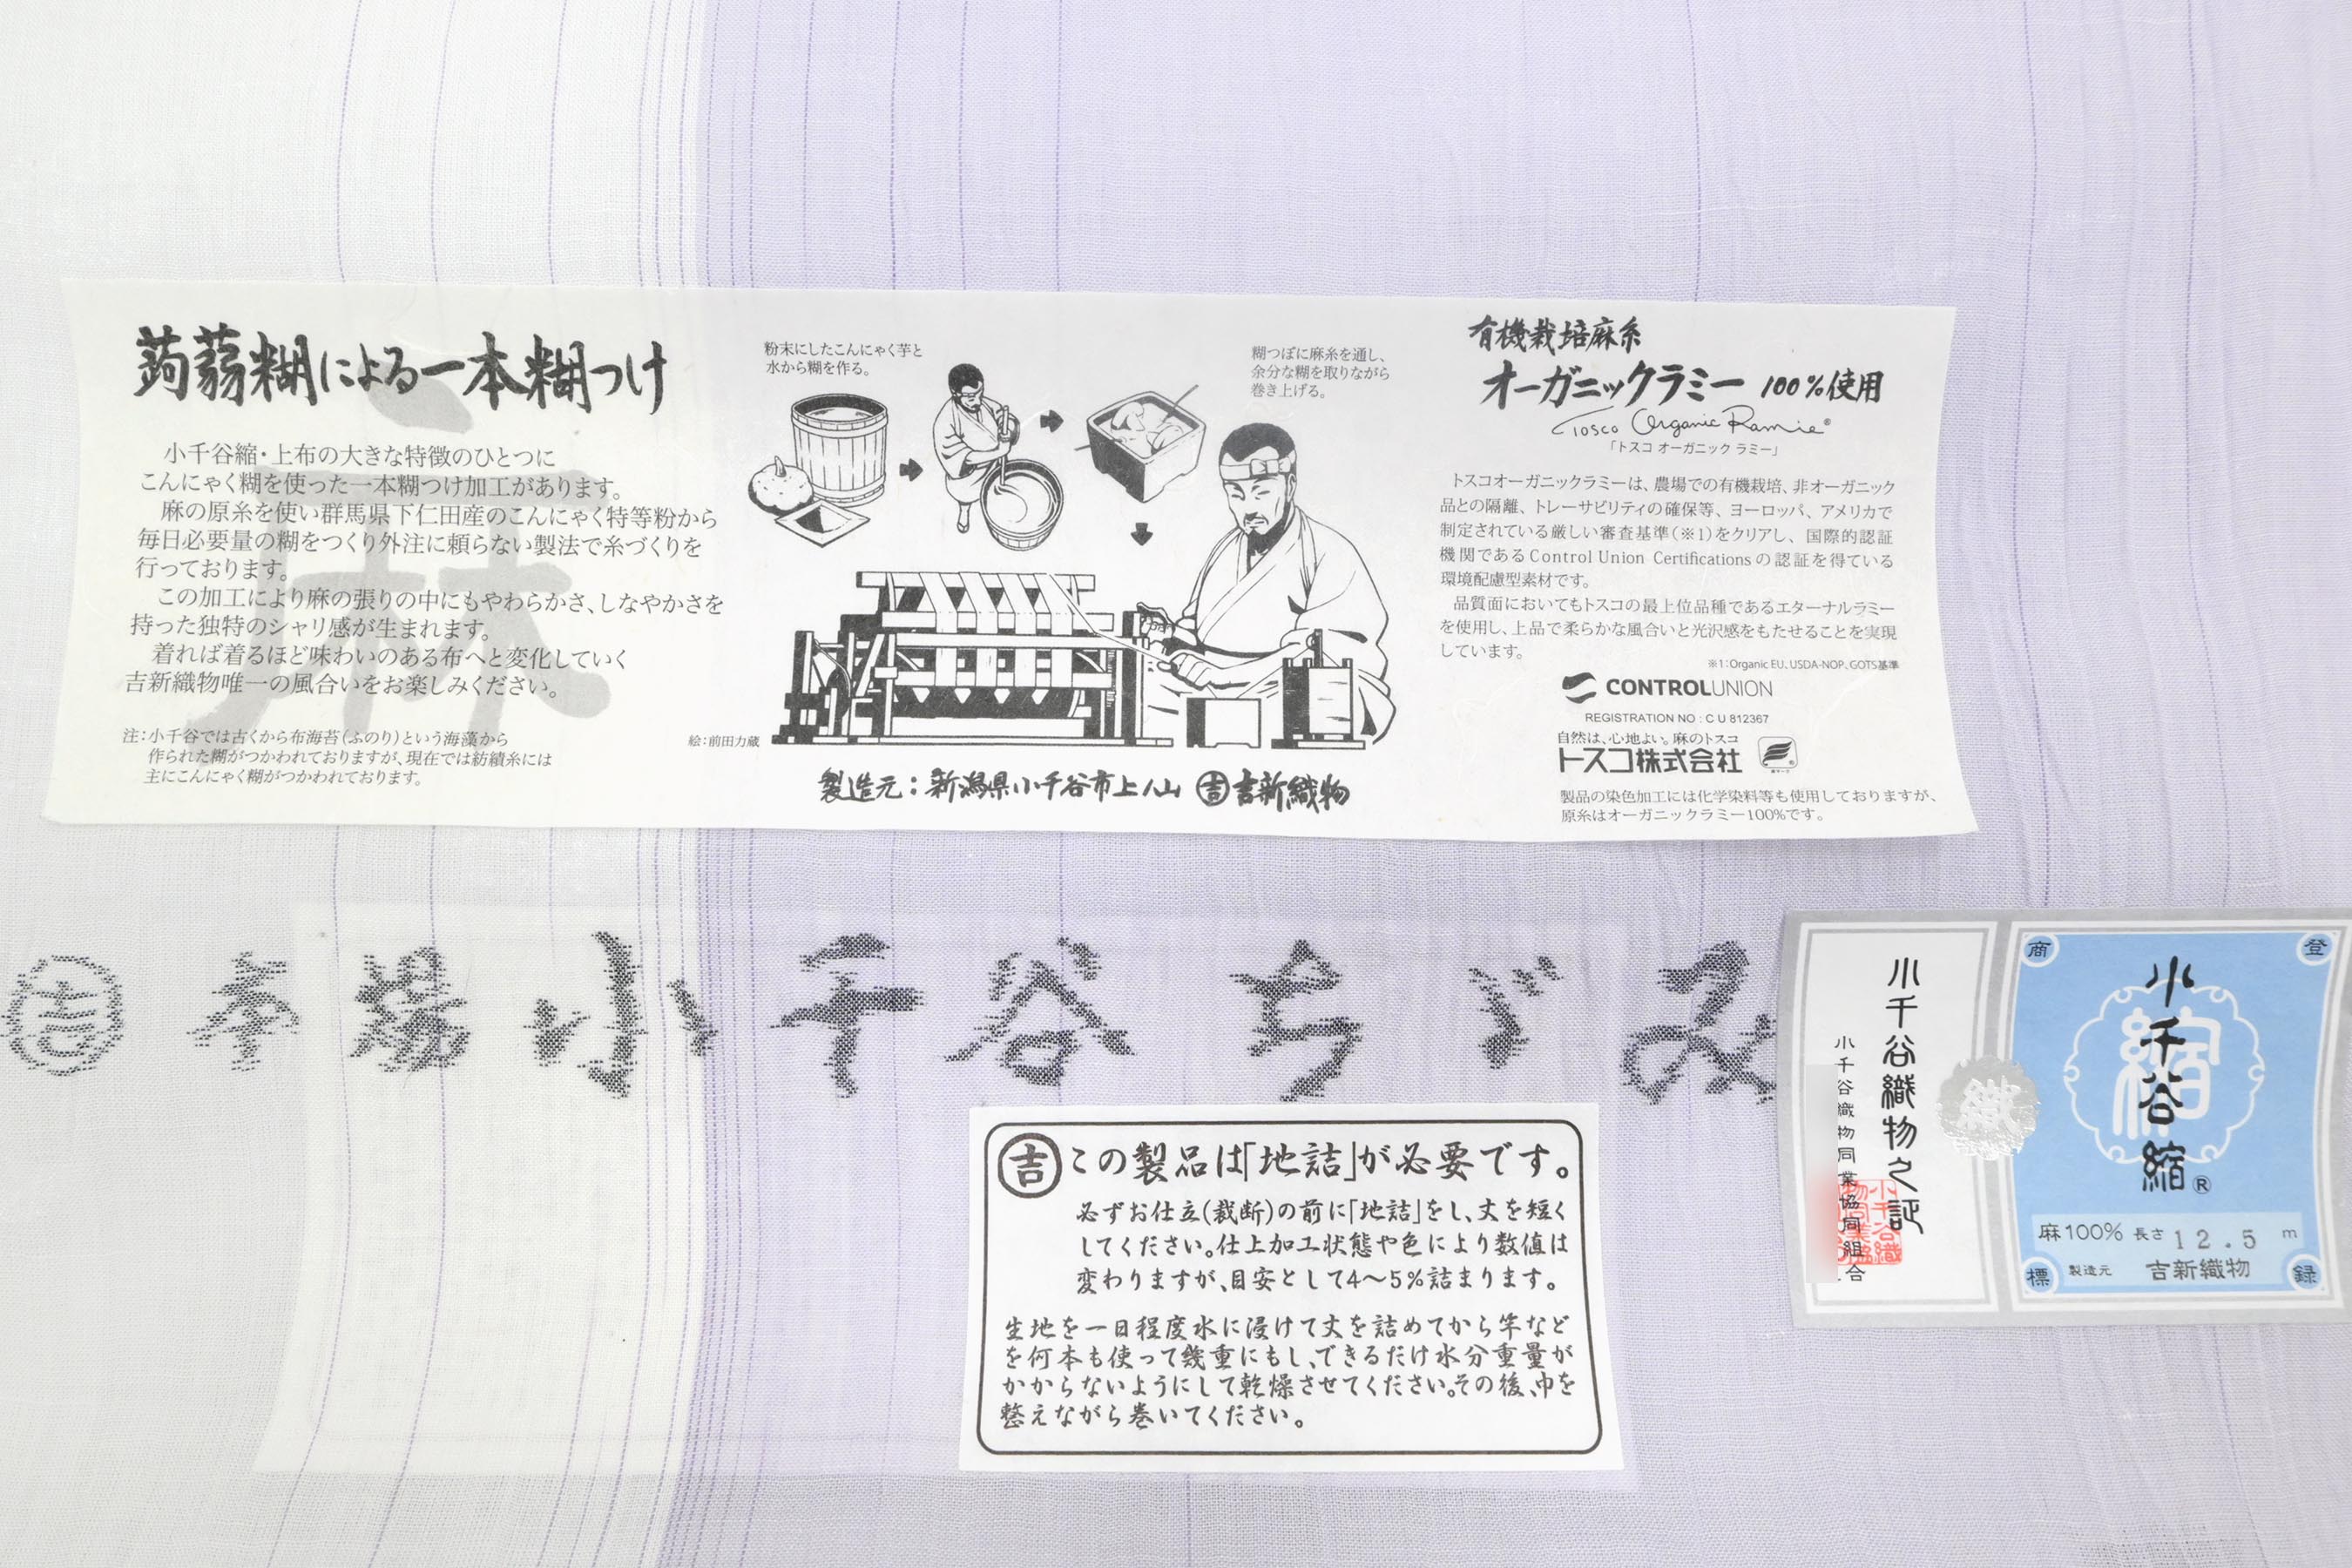 蒟蒻糊による一本糊つけ
小千谷縮・上布の大きな特徴のひとつに
こんにゃく糊を使った一本糊つけ加工があります。
麻の原糸を使い群馬県下仁田産のこんにゃく特等粉から
毎日必要量の糊をつくり外注に頼らない製法で糸づくりを
行っております。
この加工により麻の張りの中にもやわらかさ、しなやかさを
持った独特のシャリ感が生まれます。
着れば着るほど味わいのある布へと変化していく
吉新織物唯一の風合いをお楽しみください。
注:小千谷では古くから布海苔(ふのり)という海藻から
作られた糊がつかわれておりますが、現在では紡績糸には
主にこんにゃく糊がつかわれております。
麻
粉末にしたこんにゃく芋と
水から糊を作る。
糊つぼに麻糸を通し、
余分な糊を取りながら
巻き上げる。
絵:前田力蔵
製造元:新潟県小千谷市上ノ山 吉 吉新織物
有機栽培麻糸
オーガニックラミー 100%使用
Tosco Organic Ramie®
「トスコ オーガニック ラミー」
トスコオーガニックラミーは、農場での有機栽培、非オーガニック
品との隔離、トレーサビリティの確保等、ヨーロッパ、アメリカで
制定されている厳しい審査基準(※1)をクリアし、国際的認証
機関であるControl Union Certificationsの認証を得ている
環境配慮型素材です。
品質面においてもトスコの最上位品種であるエターナルラミー
を使用し、上品で柔らかな風合いと光沢感をもたせることを実現
しています。
※1:Organic EU、USDA-NOP、GOTS基準
CONTROLUNION
REGISTRATION NO : C U 812367
自然は、心地よい。麻のトスコ
トスコ株式会社
製品の染色加工には化学染料等も使用しておりますが、
原糸はオーガニックラミー100%です。
吉 本場小千谷ちぢみ
吉 この製品は「地詰」が必要です。
必ずお仕立(裁断)の前に「地詰」をし、丈を短く
してください。仕上加工状態や色により数値は
変わりますが、目安として4〜5%詰まります。
生地を一日程度水に浸けて丈を詰めてから竿など
を何本も使って幾重にもし、できるだけ水分重量が
かからないようにして乾燥させてください。その後、巾を
整えながら巻いてください。
小千谷織物之証
小千谷織物同業協同組合
織
登録商標
縮
小千谷縮®
麻100% 長さ12.5m
製造元 吉新織物